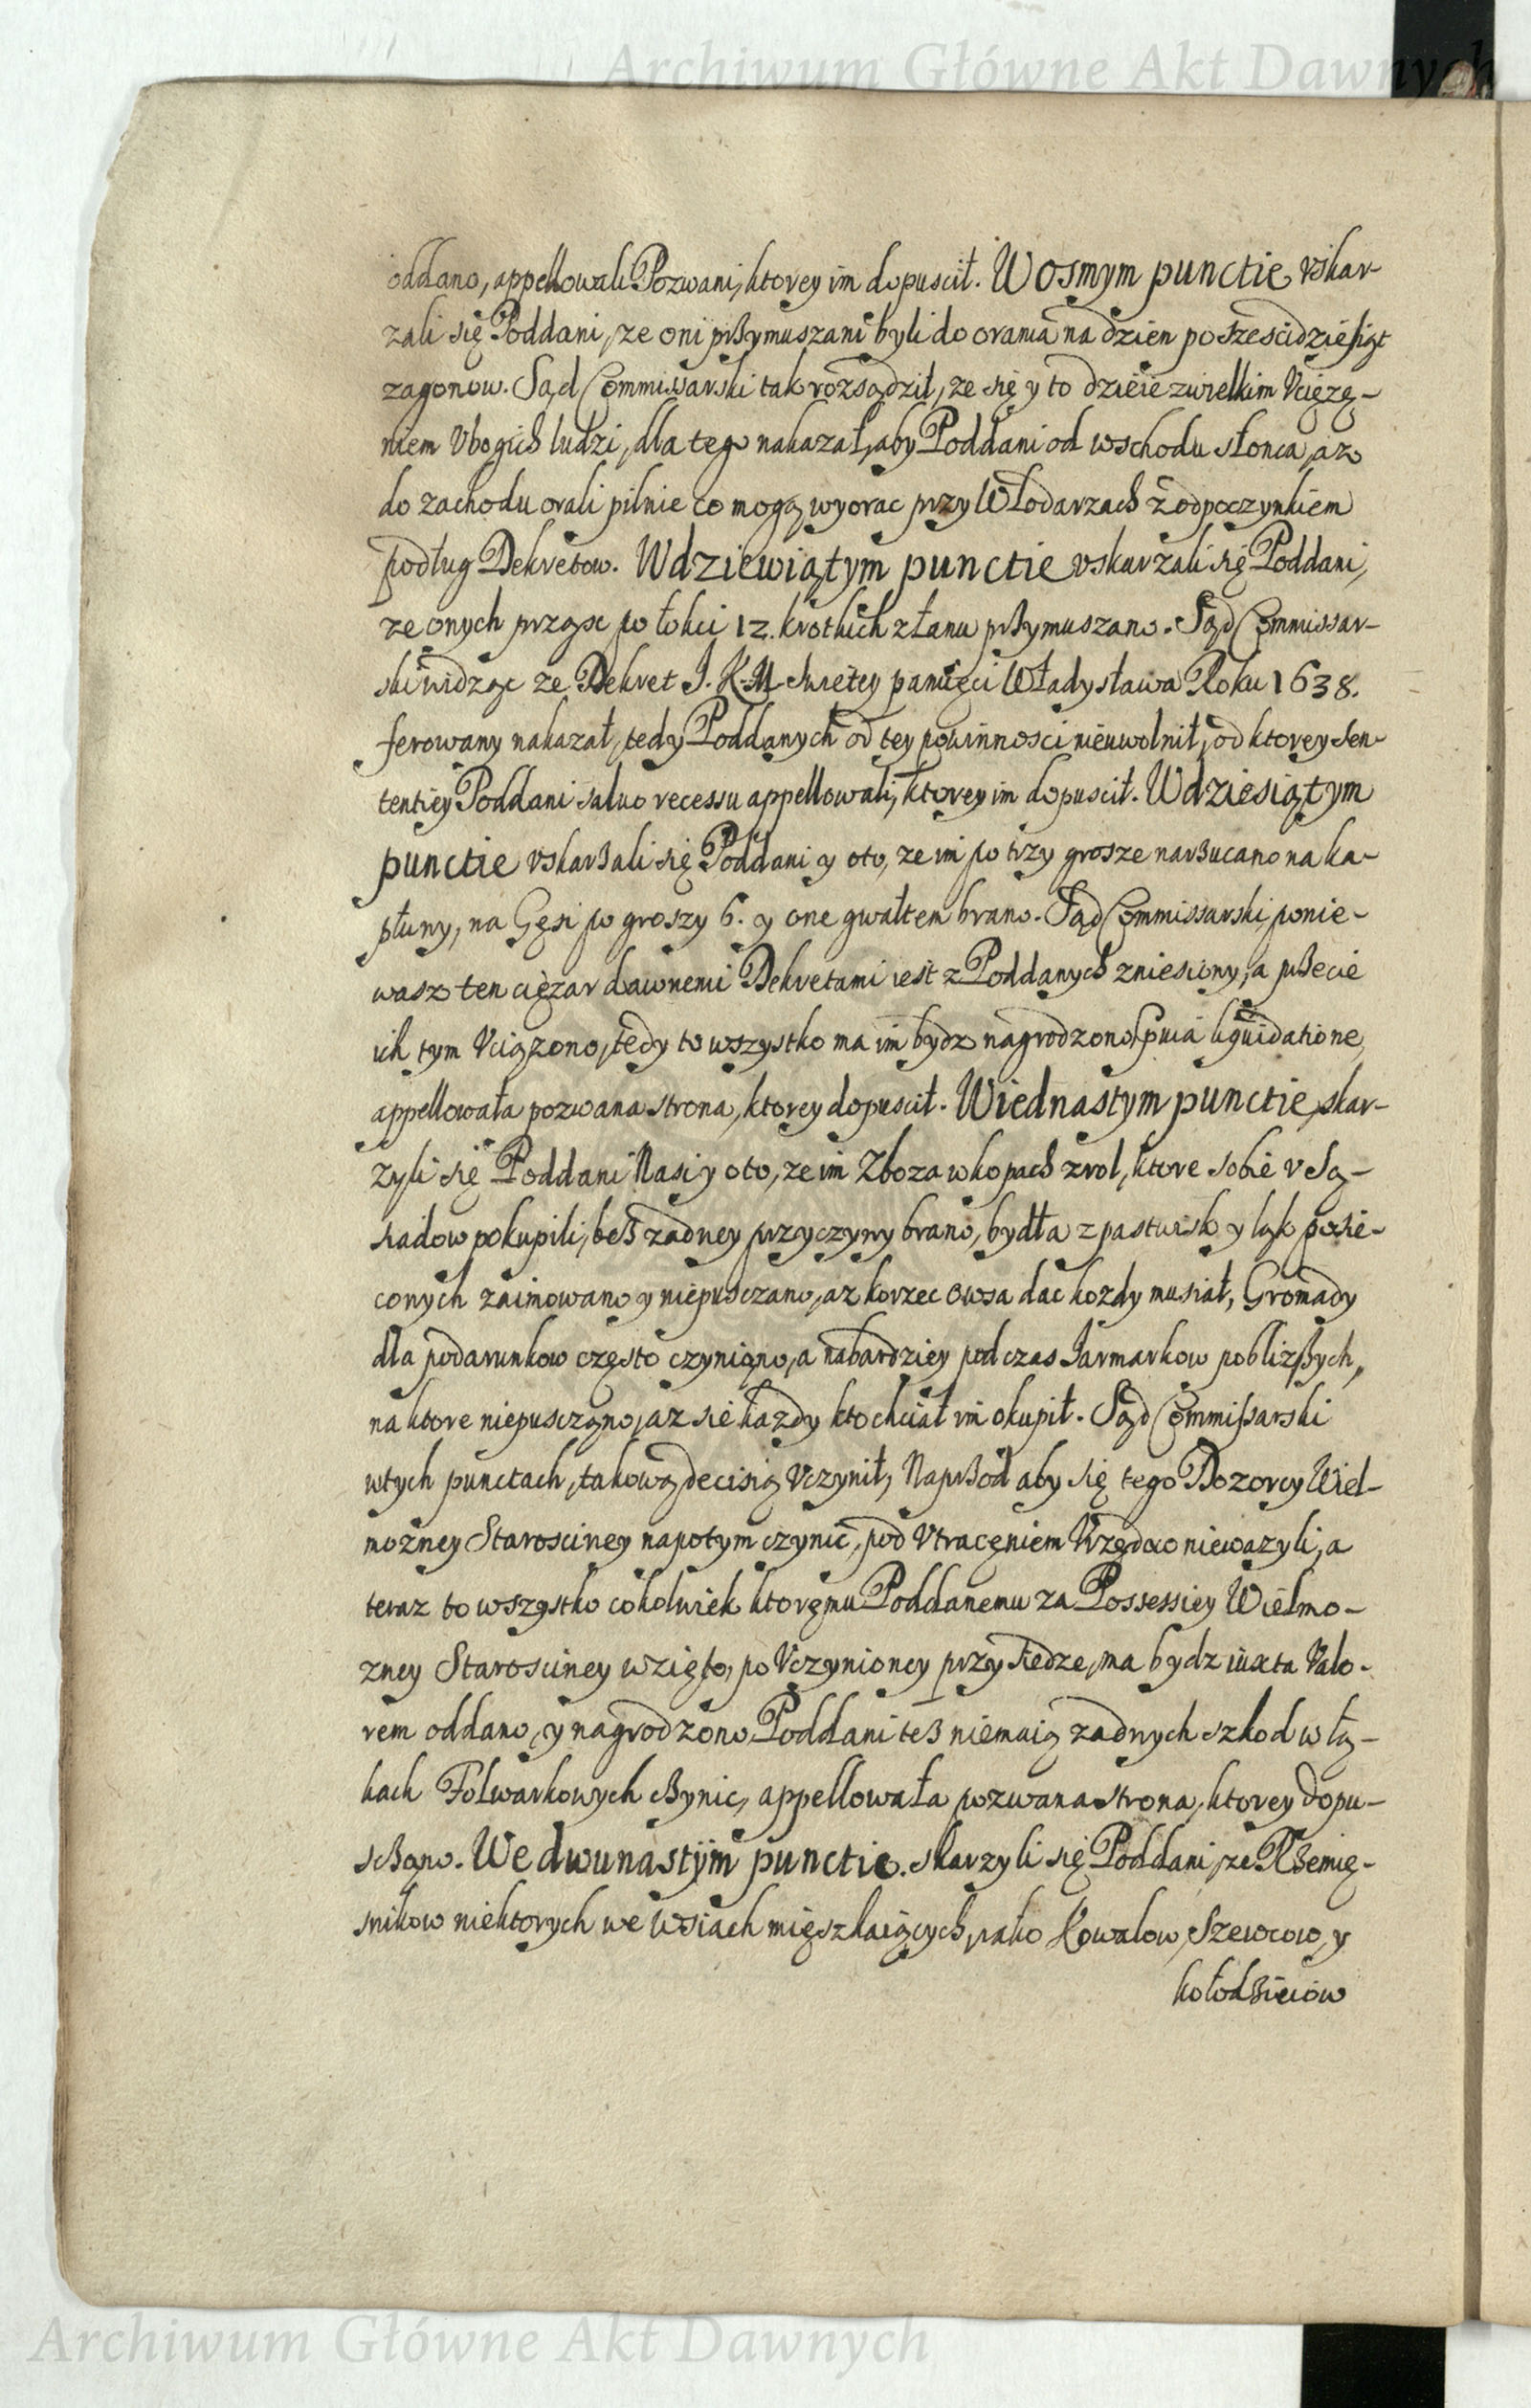 Archiwum Główne Akt Dawnych
oddano, appellowali Pozwani, ktorey im dopuscił. W osmym punctie vskar-
zali się Poddani, ze oni przymuszani byli do orania na dzien po szescidziesiąt
zagonow. Sąd Commissarski tak rozsądził, ze się y to dzieie z wielkim Vciązę-
niem Vbogich ludzi, dla tego nakazał, aby Poddani od wschodu słonca, az
do zachodu orali pilnie co mogą wyorac przy Włodarzach z odpoczynkiem
podług Dekretow. W dziewiątym punctie vskarzali się Poddani,
ze onych prząsc po łokci 12. krotkich z łanu przymuszano. Sąd Commissar-
ski widząc ze Dekret J. K. M. swiętey pamięci Władysława Roku 1638.
ferowany nakazał, tedy Poddanych od tey powinnosci nieuwolnił, od ktorey sen-
tentiey Poddani saluo recessu appellowali, ktorey im dopuscił. W dziesiątym
punctie vskarzali się Poddani y oto, ze im po trzy grosze narzucano na ka-
płuny, na Gęsi po groszy 6. y one gwałtem brano. Sąd Commissarski, ponie-
wasz ten cięzar dawnemi Dekretami iest z Poddanych zniesiony, a przecie
ich tym Vciązono, tedy to wszystko ma im bydz nagrodzono liquidatione,
appellowała pozwana strona, ktorey dopuscił. W iednastym punctie, skar-
zyli się Poddani Nasi y oto, ze im Zboza w kopach z rol, ktore sobie v Są-
siadow pokupili, bez zadney przyczyny brano, bydła z pastwisk y łąk posie-
conych zaimowano y niepusczano, az korzec owsa dac kozdy musiał, Gromady
dla podarunkow często czyniono, a nabardziey pod czas Jarmarkow poblizszych,
na ktore niepusczono, az sie kazdy kto chciał im okupił. Sąd Commissarski
w tych punctach, takową decisią Vczynił, Naprzod aby się tego Dozorcy Wiel-
mozney Starosciney napotym czynic, pod Vtracęniem Vrzędow niewazyli, a
teraz to wszystko cokolwiek ktoremu Poddanemu za Possessiey Wielmo-
zney Starosciney wzięto, po Vczynioney przysiedze, ma bydz iuxta Valo-
rem oddano, y nagrodzono, Poddani tez niemaią zadnych szkod w łą-
kach Folwarkowych czynic, appellowała pozwana strona, ktorey dopu-
sczono. We dwunastym punctie. skarzyli się Poddani, ze Rzemię-
snikow niektorych we wsiach mięszkaiących, iako Kowalow, Szewcow, y
kołodzieiow
Archiwum Główne Akt Dawnych